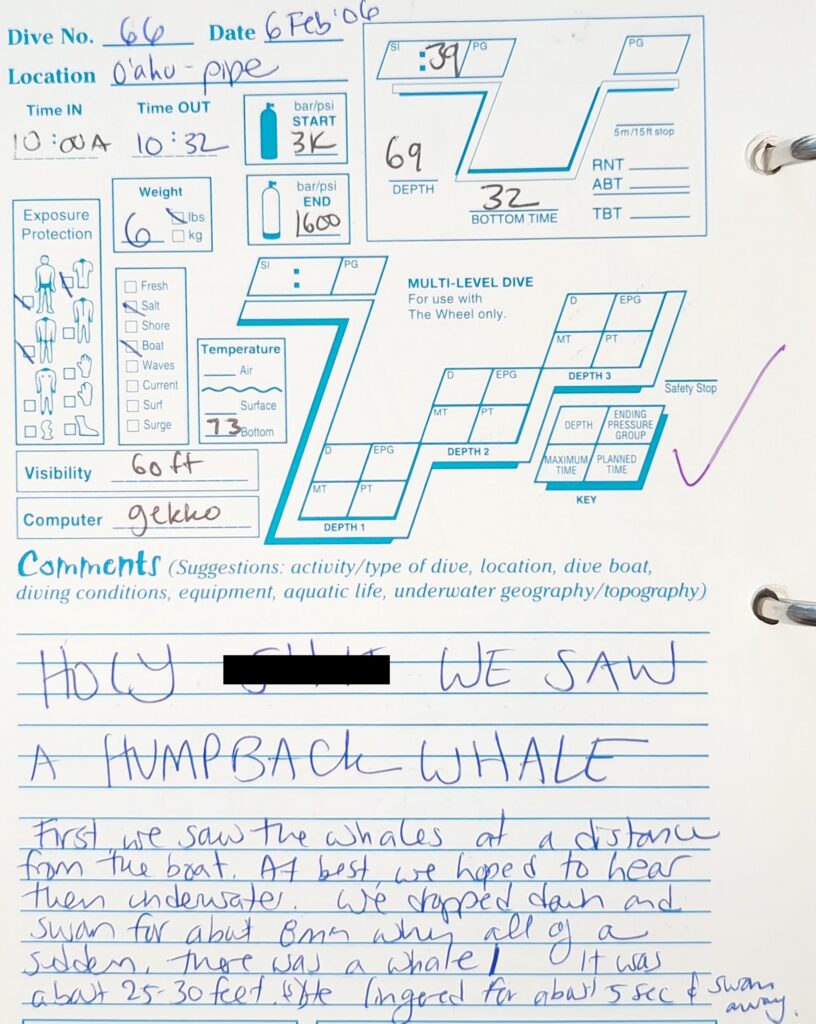 Dive No. 66 Date 6 Feb '06
Location O'ahu - pipe
Time IN Time OUT
10:00A 10:32
bar/psi
START
3K
bar/psi
END
1600
Weight
6 lbs
kg
SI :39 PG
PG
5m/15ft stop
69
DEPTH
32
BOTTOM TIME
RNT
ABT
TBT
Exposure
Protection
Fresh
Salt
Shore
Boat
Waves
Current
Surf
Surge
Temperature
Air
Surface
73 Bottom
Visibility 60ft
Computer gekko
SI : PG
MULTI-LEVEL DIVE
For use with
The Wheel only.
D EPG
MT PT
DEPTH 1
D EPG
MT PT
DEPTH 2
D EPG
MT PT
DEPTH 3
Safety Stop
DEPTH ENDING PRESSURE GROUP
MAXIMUM TIME PLANNED TIME
KEY
Comments (Suggestions: activity/type of dive, location, dive boat,
diving conditions, equipment, aquatic life, underwater geography/topography)
HOLY WE SAW
A HUMPBACK WHALE
First, we saw the whales at a distance
from the boat. At best, we hoped to hear
them underwater. We dropped down and
swam for about 8mn when all of a
sudden, there was a whale! It was
about 25-30 feet. lingered for about 5 sec & swam
away.